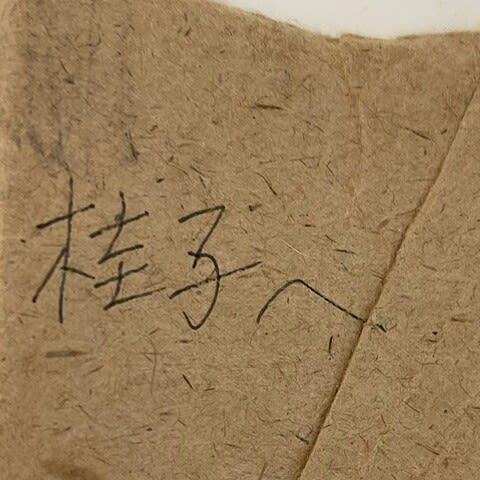 桂子へ